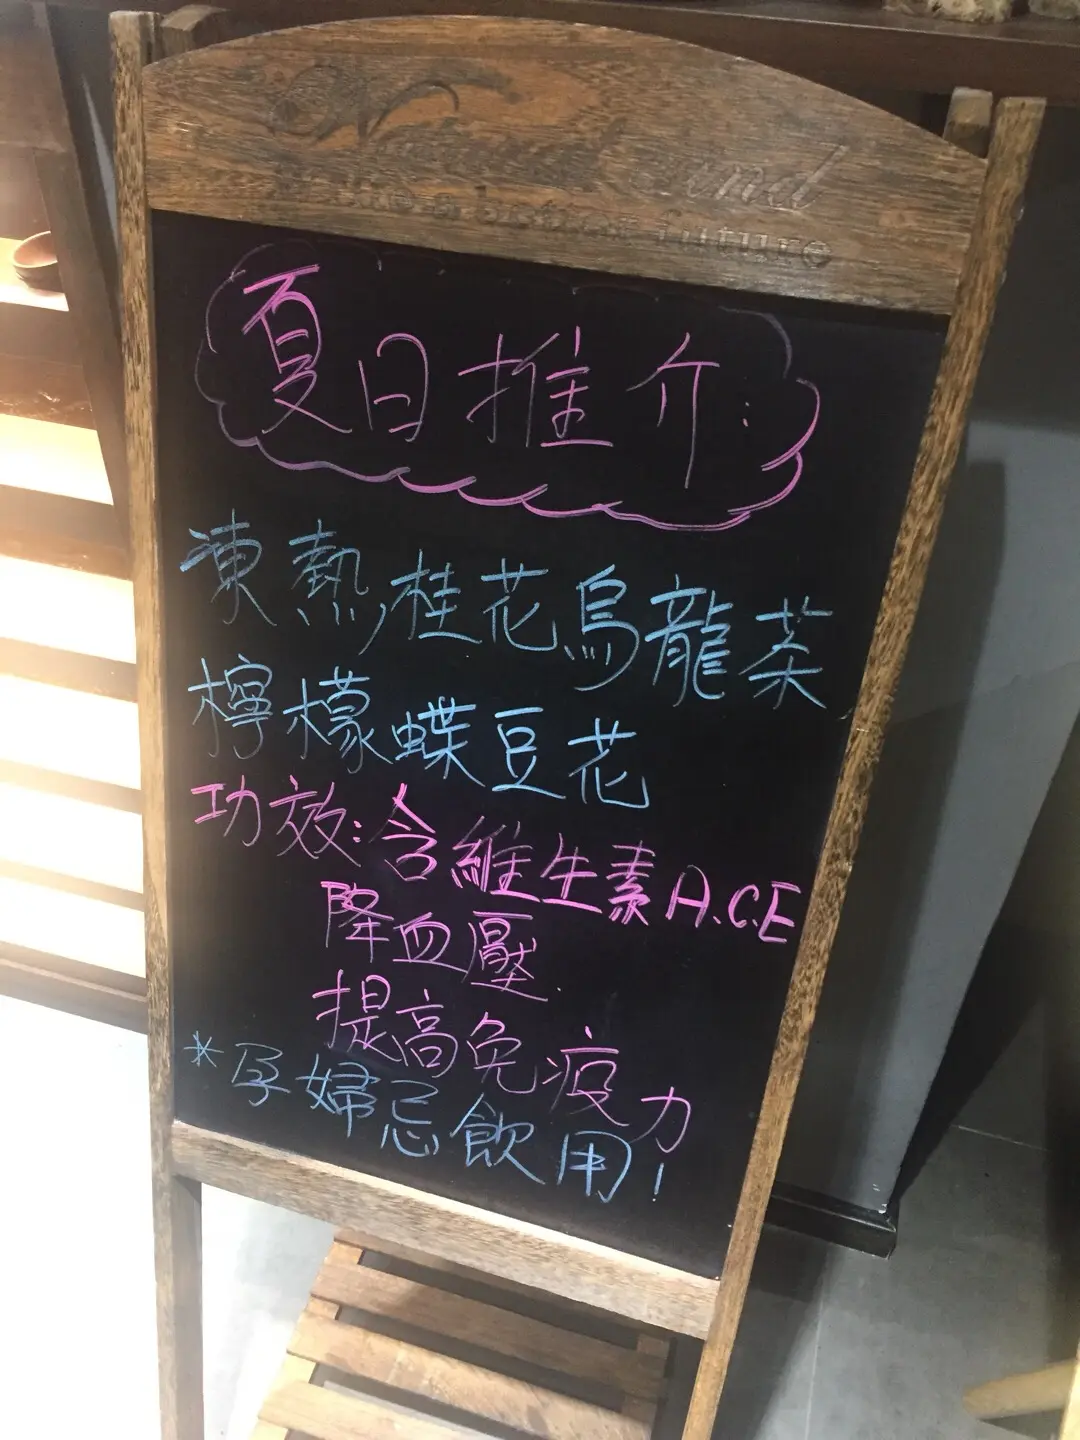 and
a better future
夏日推介:
凍熱,桂花烏龍茶
檸檬蝶豆花
功效:含維生素A.C.E
降血壓.
提高免疫力
*孕婦忌飲用!